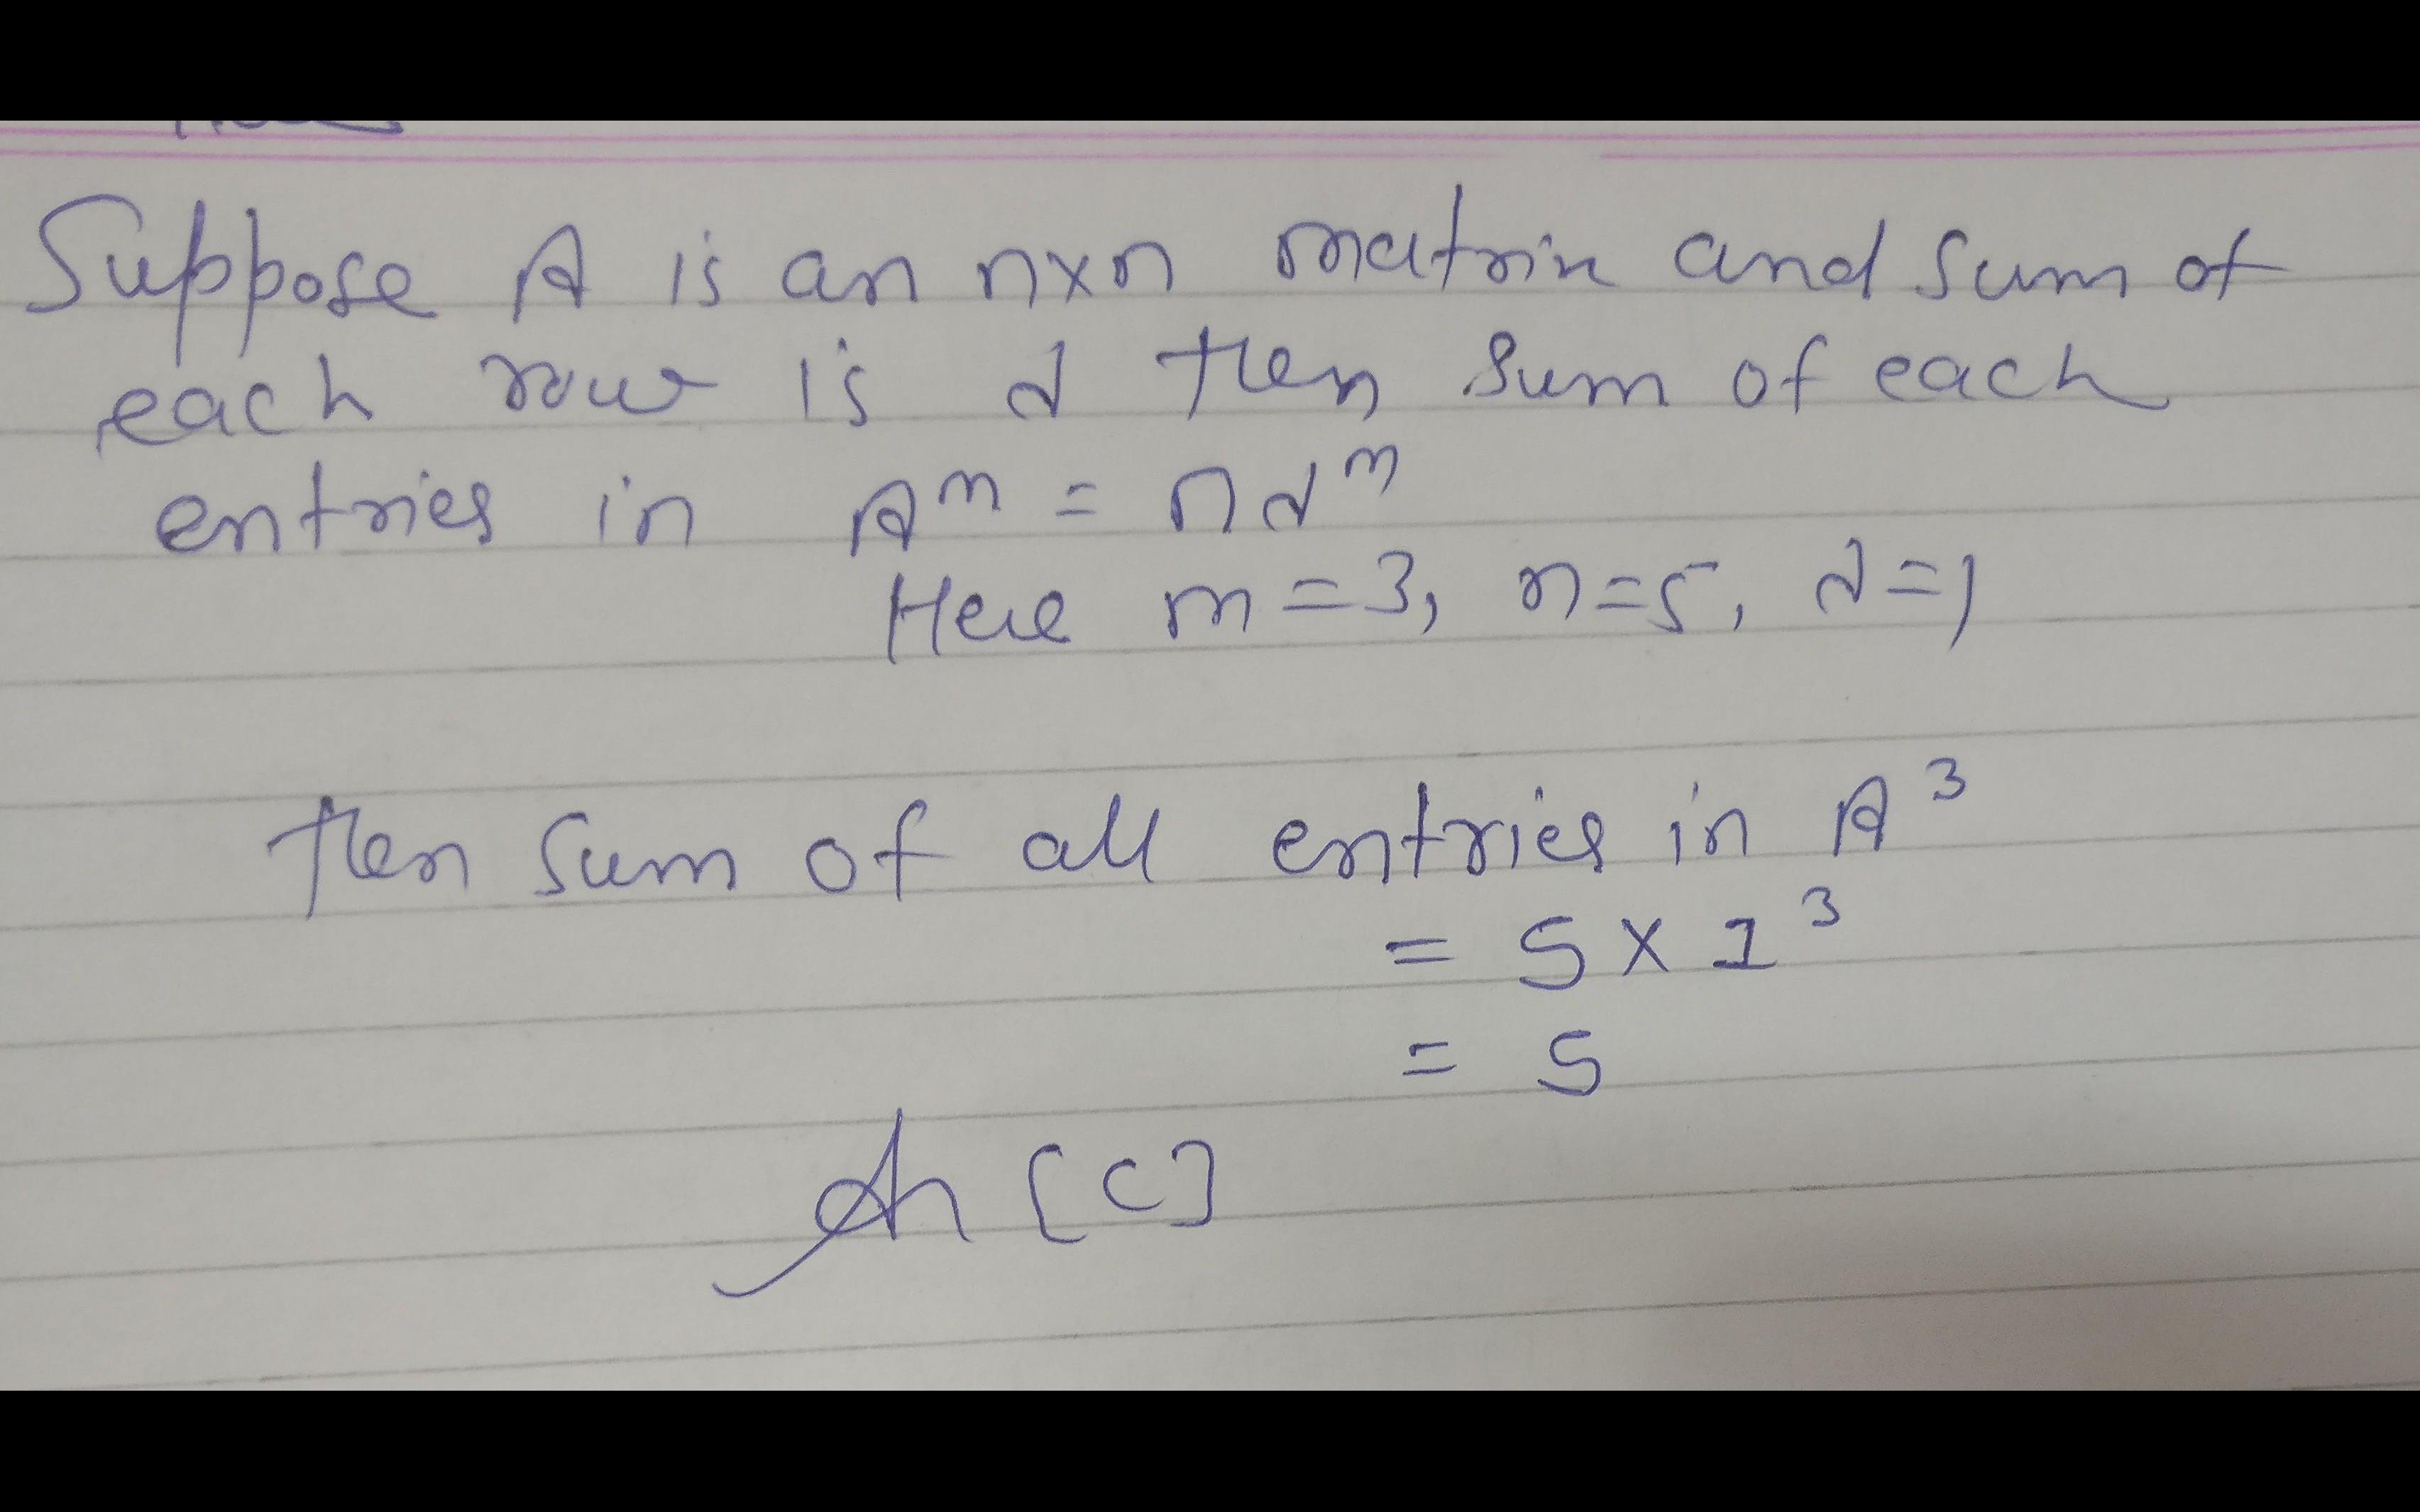 Suppose A is an n×n matrix and sum of
each row is d then sum of each
entries in Aᵐ = n dᵐ
Here m = 3, n = 5, d = 1
then sum of all entries in A³
= 5 × 1³
= 5
[C]